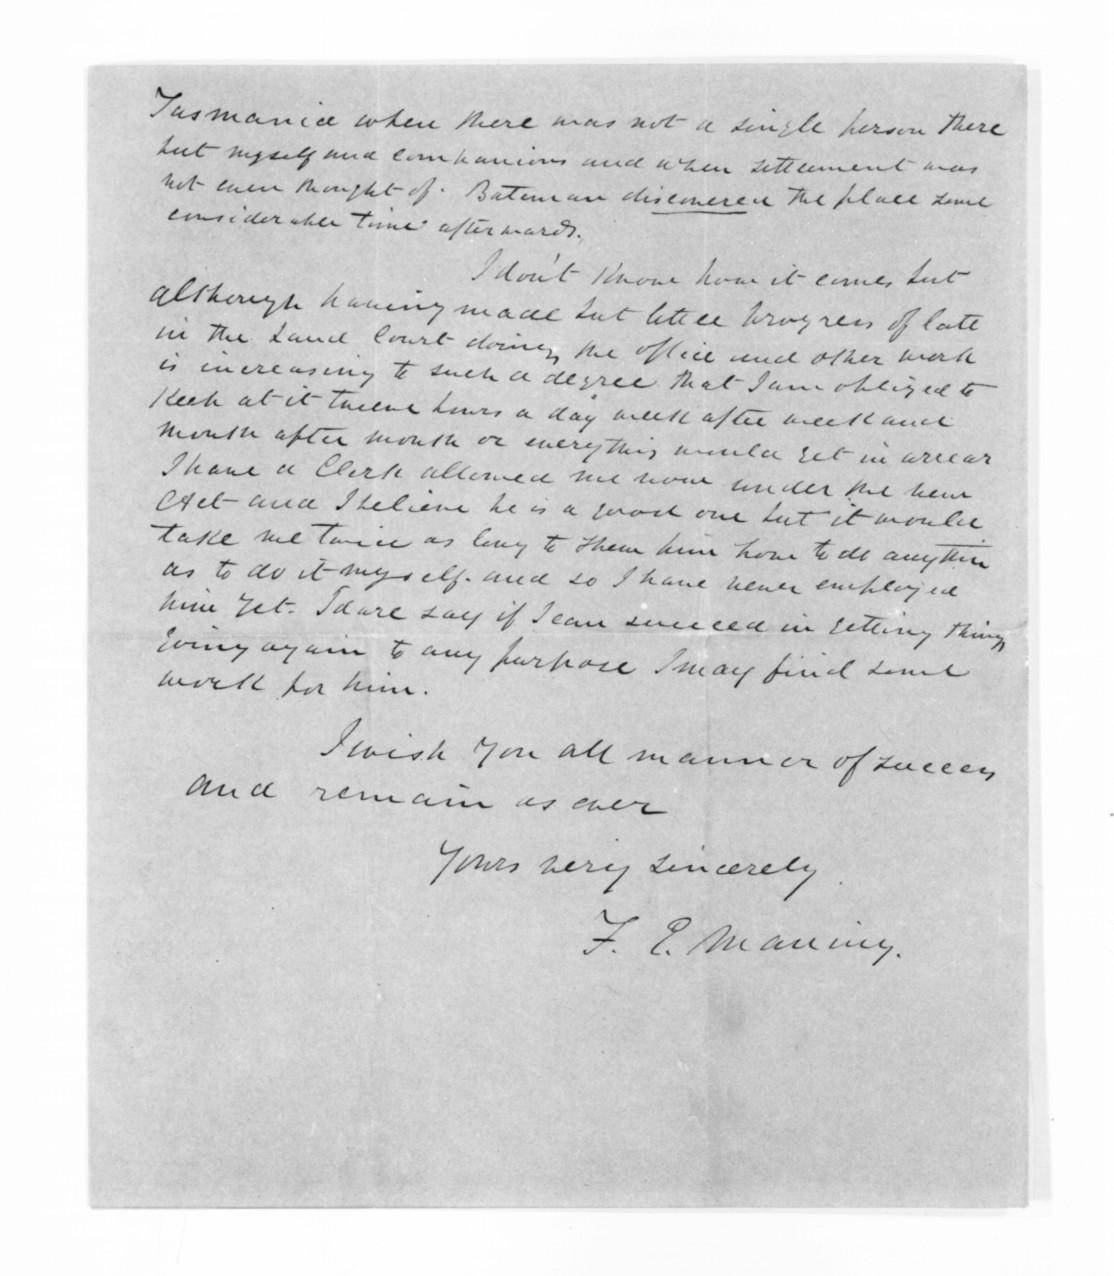 Tasmania when there was not a single person there
but myself and companions and when settlement was
not even thought of. Bateman discovered the place some
considerable time afterwards.
I don't know how it comes but
although having made but little progress of late
in the Land Court doing, the office and other work
is increasing to such a degree that I am obliged to
keep at it twelve hours a day week after week and
month after month or everything would get in arrear
I have a Clerk allowed me now under the new
Act and I believe he is a good one but it would
take me twice as long to shew him how to do anything
as to do it myself. and so I have never employed
him yet. I dare say if I can succeed in getting things
going again to any purpose I may find some
work for him.
I wish you all manner of success
and remain as ever
Yours very sincerely
F. E. Maning.